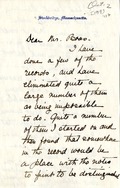 Stockbridge, Massachusetts.
Oct. 2
Dear Mr. Boas:
I have
done a few of the
records, and have
eliminated quite a
large number of them
as being impossible
to do. Quite a number
of them I started on and
then found that somewhere
in the record would be
a place with the notes
to faint to be distinguished